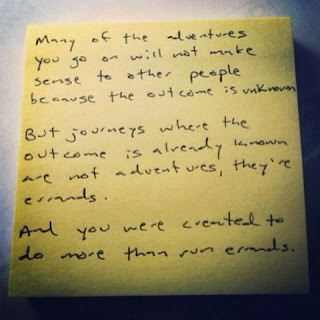 Many of the adventures
you go on will not make
sense to other people
because the outcome is unknown
But journeys where the
outcome is already known
are not adventures, they're
errands.
And you were created to
do more than run errands.